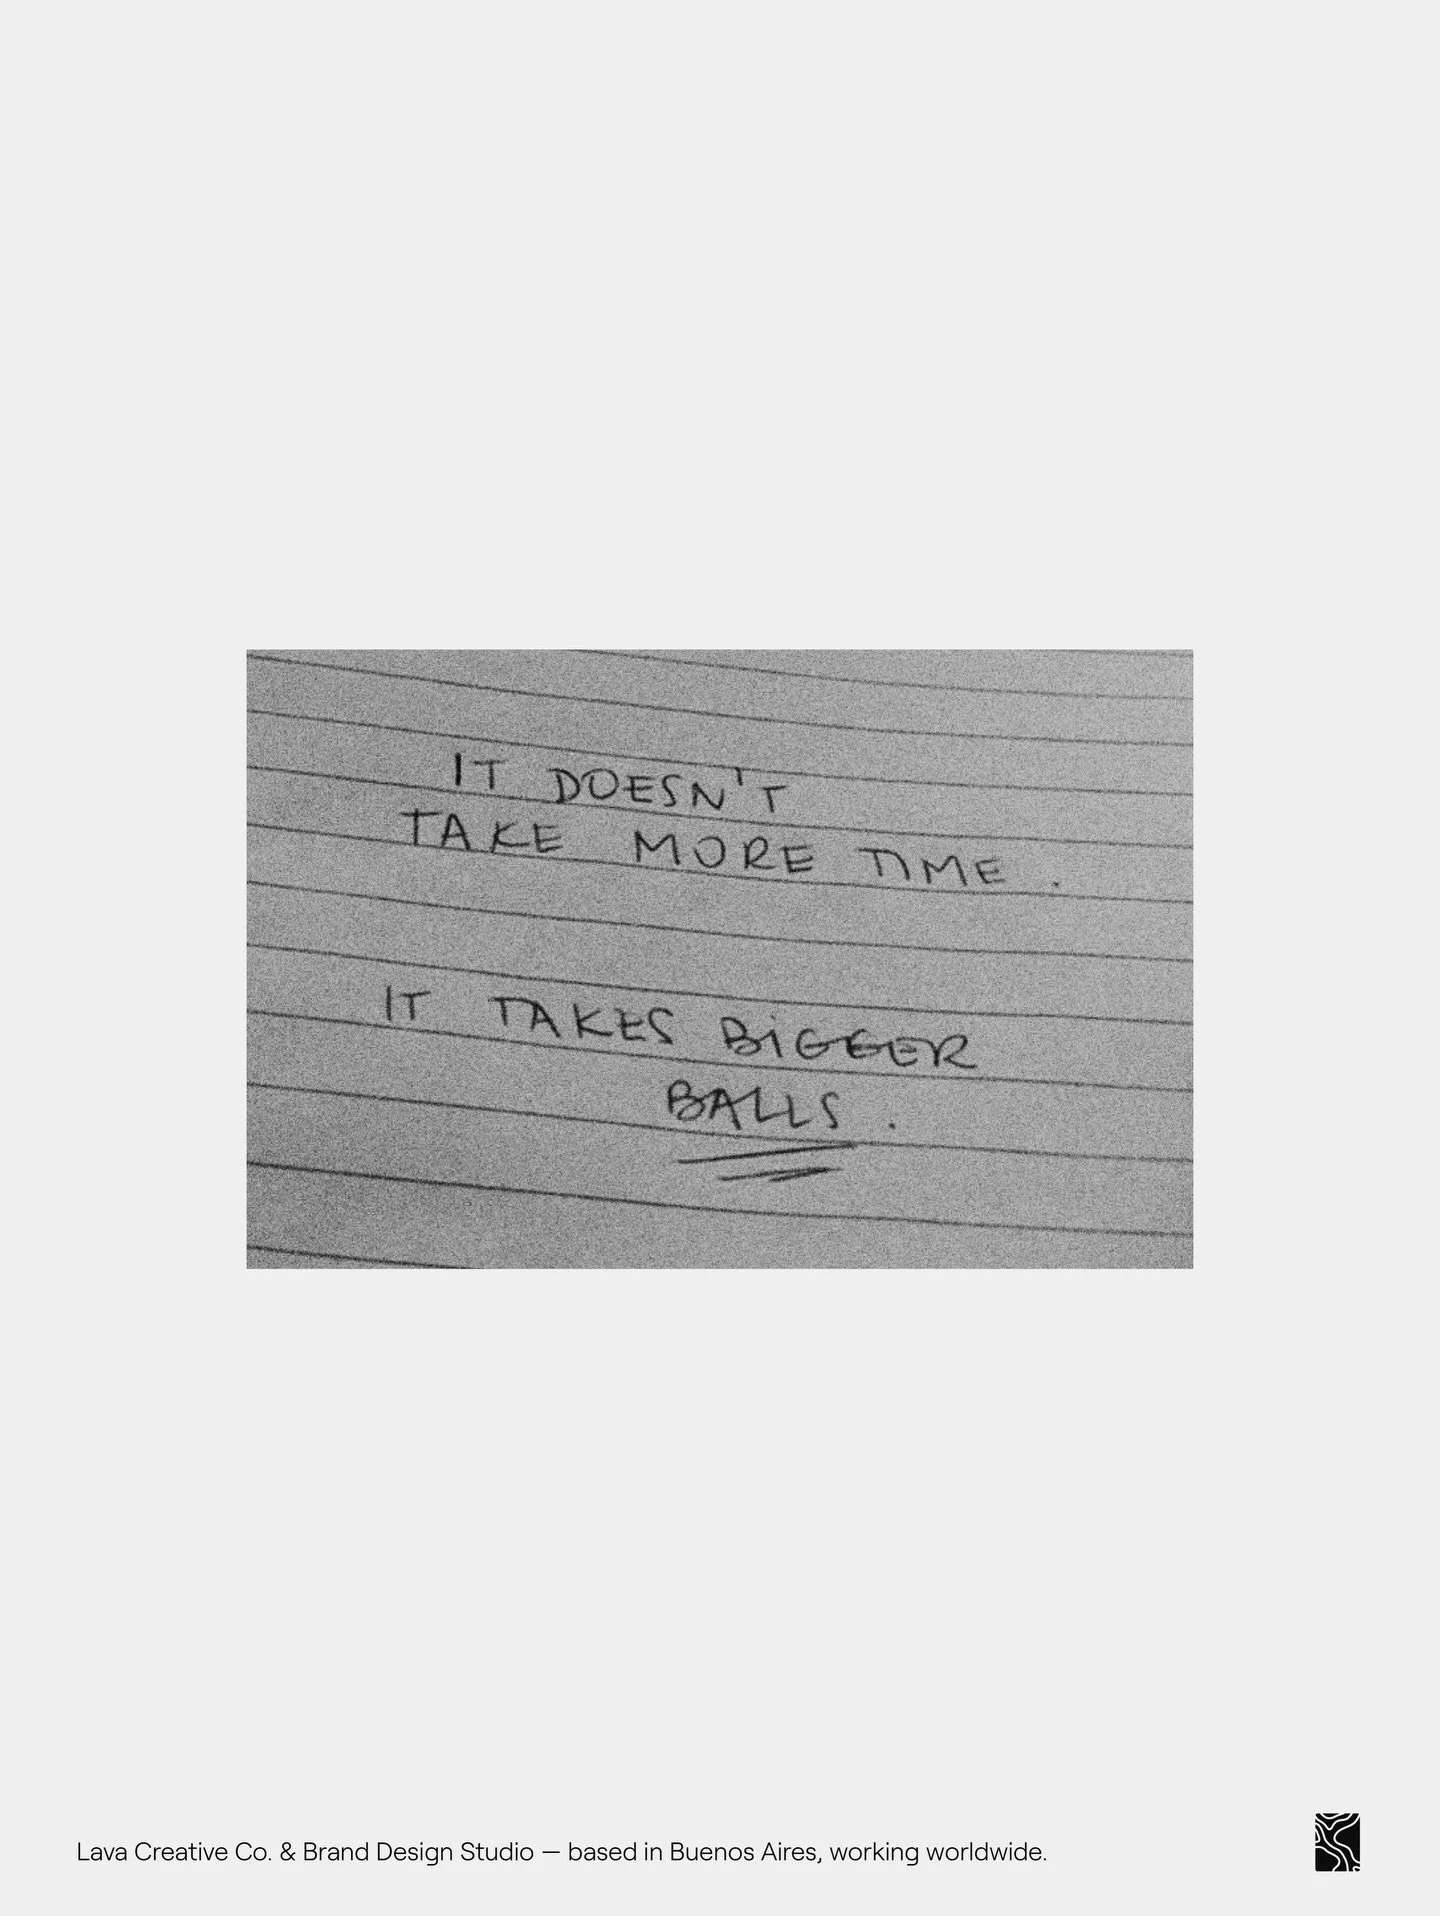 IT DOESN'T
TAKE MORE TIME.
IT TAKES BIGGER
BALLS.
Lava Creative Co. & Brand Design Studio — based in Buenos Aires, working worldwide.